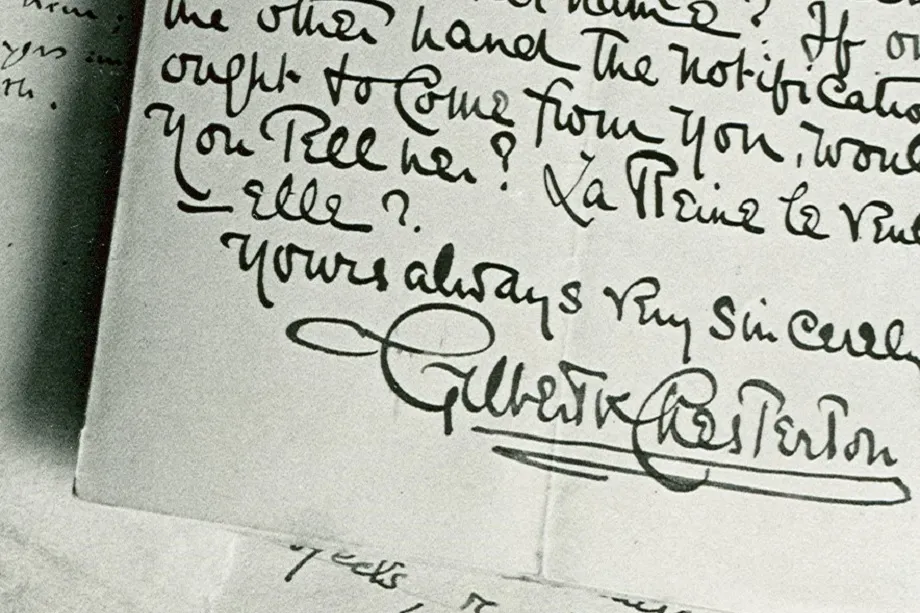 name? If on
the other hand the notificatio
ought to come from you, woul
you tell her? La Reine le veut
— elle?
Yours always very sincerely
Gilbert K Chesterton